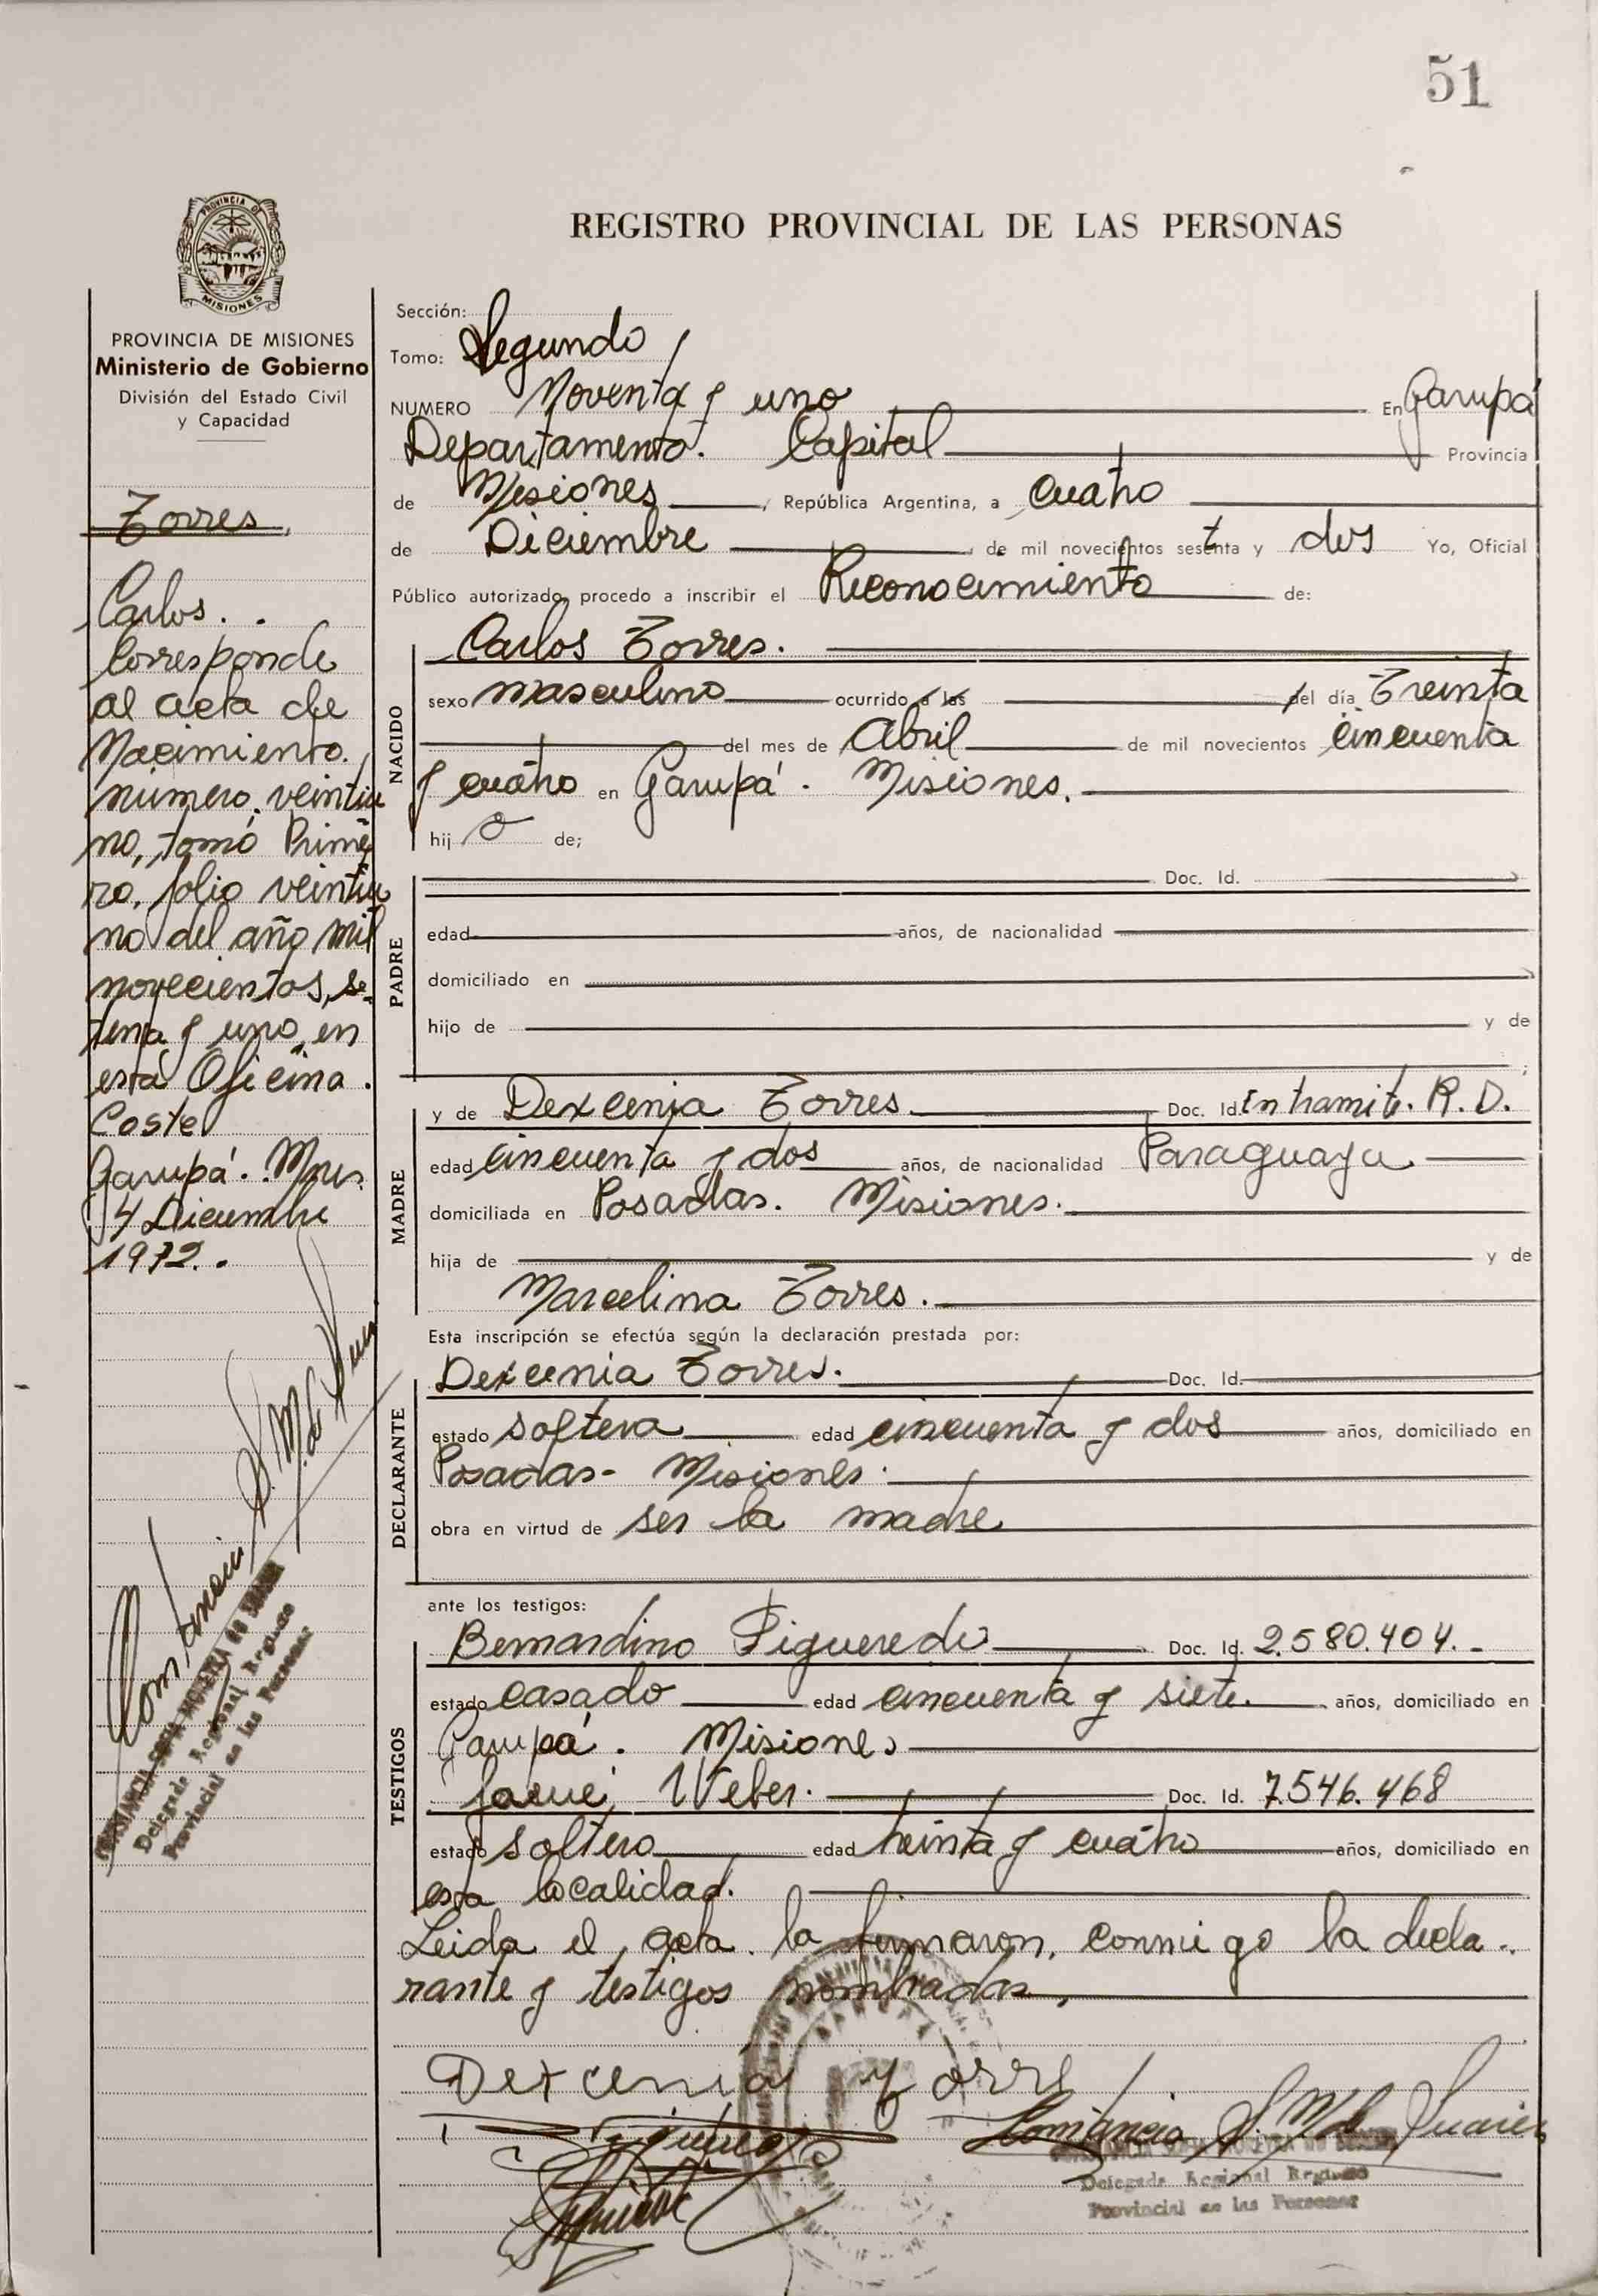 51
PROVINCIA DE
MISIONES
REGISTRO PROVINCIAL DE LAS PERSONAS
PROVINCIA DE MISIONES
Ministerio de Gobierno
División del Estado Civil
y Capacidad
Torres,
Carlos. .
Corresponde
al acta de
Nacimiento.
número. veintiu
no, tomo Prime
ro, folio veintiu
no del año mil
novecientos, se-
tenta y uno, en
esta Oficina.
Coste
Garupá. Mnes.
4 Diciembre
1972. .
Delegada Regional Registro
Provincial de las Personas
Sección:
Tomo: Segundo
NUMERO Noventa y uno En Garupá
Departamento. Capital Provincia
de Misiones, República Argentina, a cuatro
de Diciembre de mil novecientos setenta y dos Yo, Oficial
Público autorizado, procedo a inscribir el Reconocimiento de:
NACIDO
Carlos Torres.
sexo masculino ocurrido a las del día Treinta
del mes de Abril de mil novecientos cincuenta
y cuatro en Garupá. Misiones.
hij o de;
PADRE
Doc. Id.
edad años, de nacionalidad
domiciliado en
hijo de y de
MADRE
y de Dexcenia Torres Doc. Id. En tramite. R.D.
edad cincuenta y dos años, de nacionalidad Paraguaya
domiciliada en Posadas. Misiones.
hija de y de
Marcelina Torres.
Esta inscripción se efectúa según la declaración prestada por:
DECLARANTE
Dexcenia Torres. Doc. Id.
estado soltera edad cincuenta y dos años, domiciliado en
Posadas - Misiones.
obra en virtud de ser la madre
ante los testigos:
TESTIGOS
Bernardino Figueredo Doc. Id. 2.580.404.-
estado casado edad cincuenta y siete años, domiciliado en
Garupá. Misiones
Weber. Doc. Id. 7.546.468
estado soltero edad treinta y cuatro años, domiciliado en
esta localidad.
Leida el acta. la firmaron, conmigo la decla-
rante y testigos nombrados.
Dexcenia Torre
Constancia S. M. de Suarez
Delegada Regional Registro
Provincial de las Personas